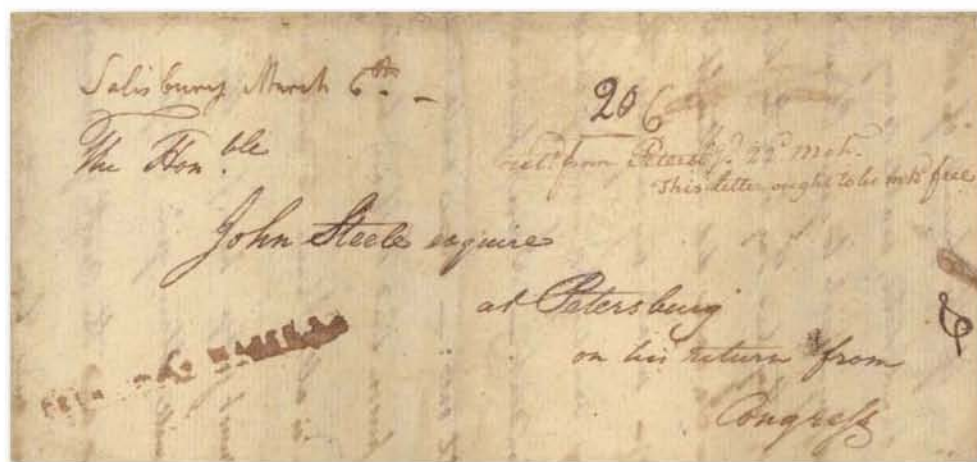 Salisbury March 6th. –
20 6
The Honble.
from Petersbg. 22d. Mch.
This letter ought to be mkd free
John Steele esquire
at Petersburg
on his return from
Congress